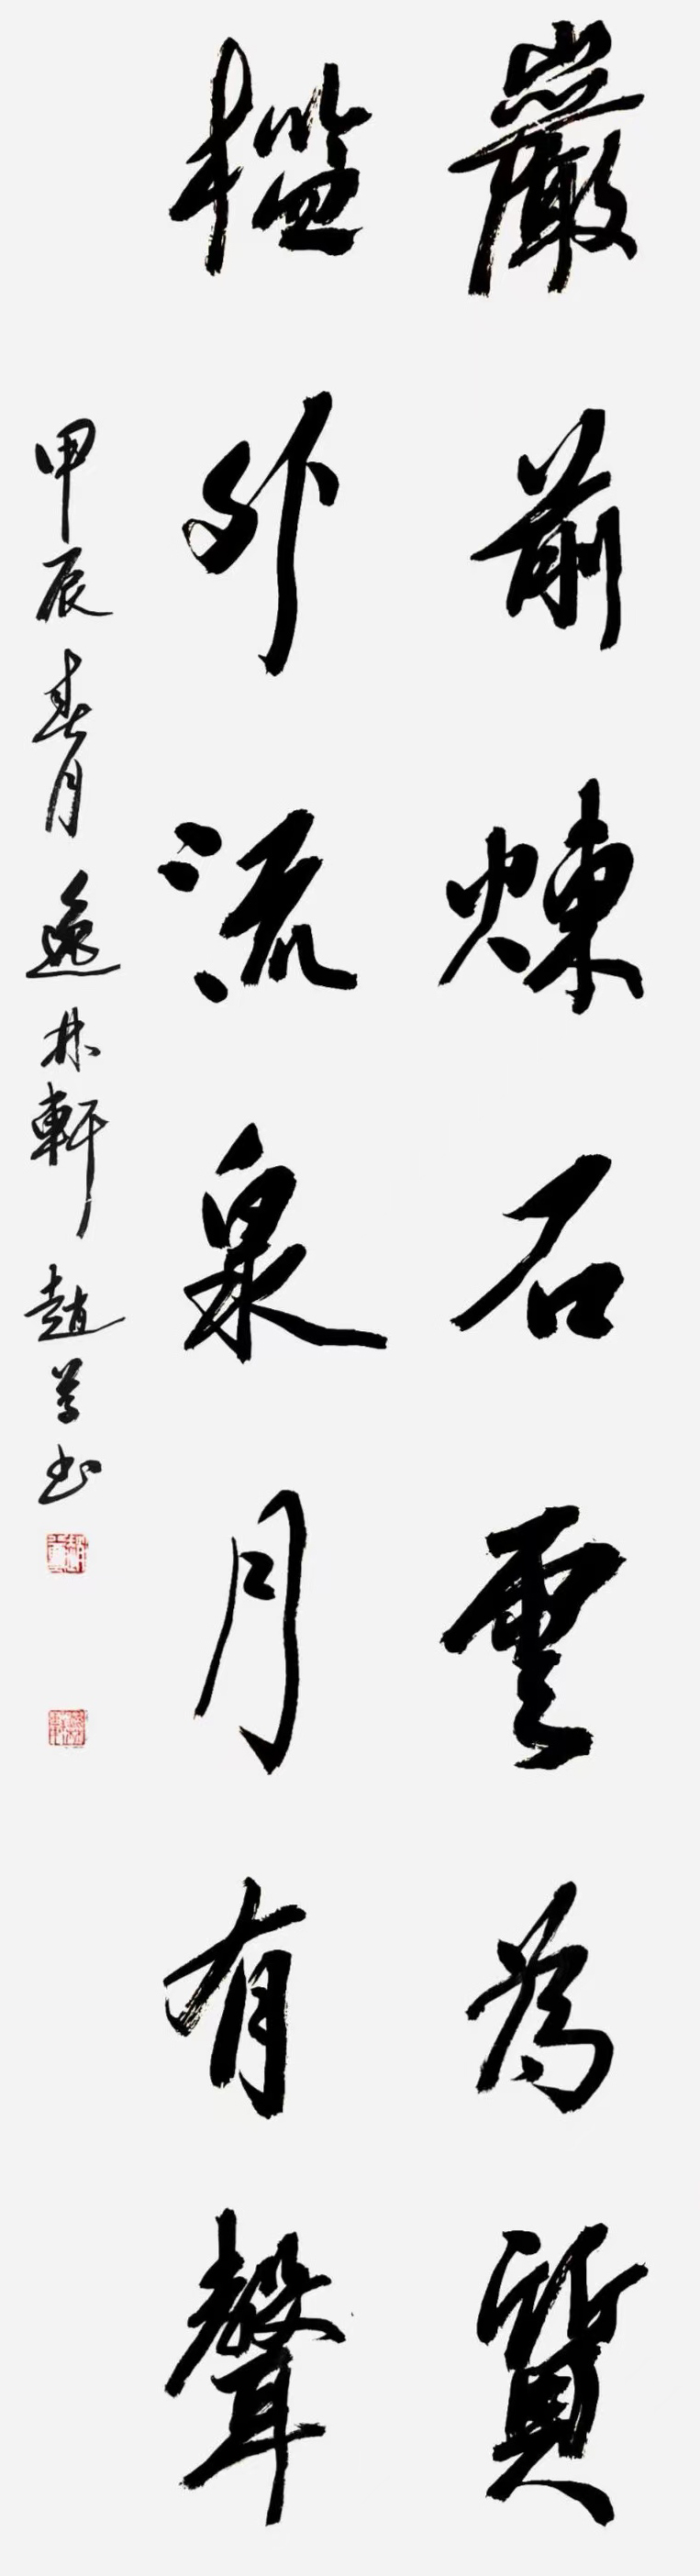 巖前煉石雲為質
檻外流泉月有聲
甲辰春月逸林軒趙學书